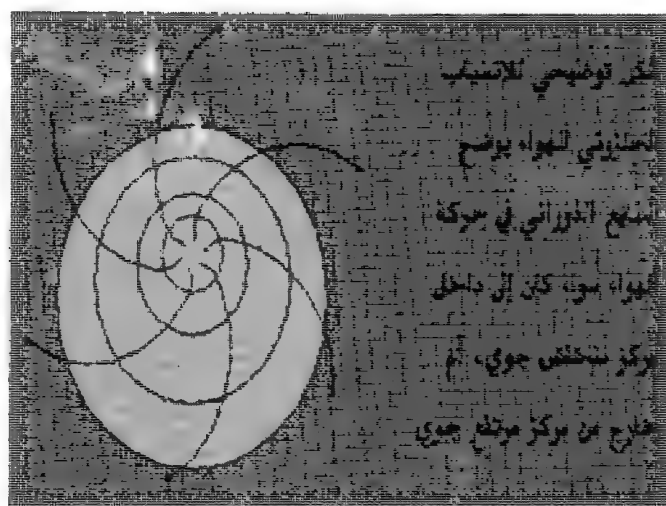 توضيحي للانسياب
الحلزوني للهواء يوضح
الدوراني في حركة
الهواء سواء كان إلى داخل
مركز منخفض جوي، أم
خارج من مركز مرتفع جوي